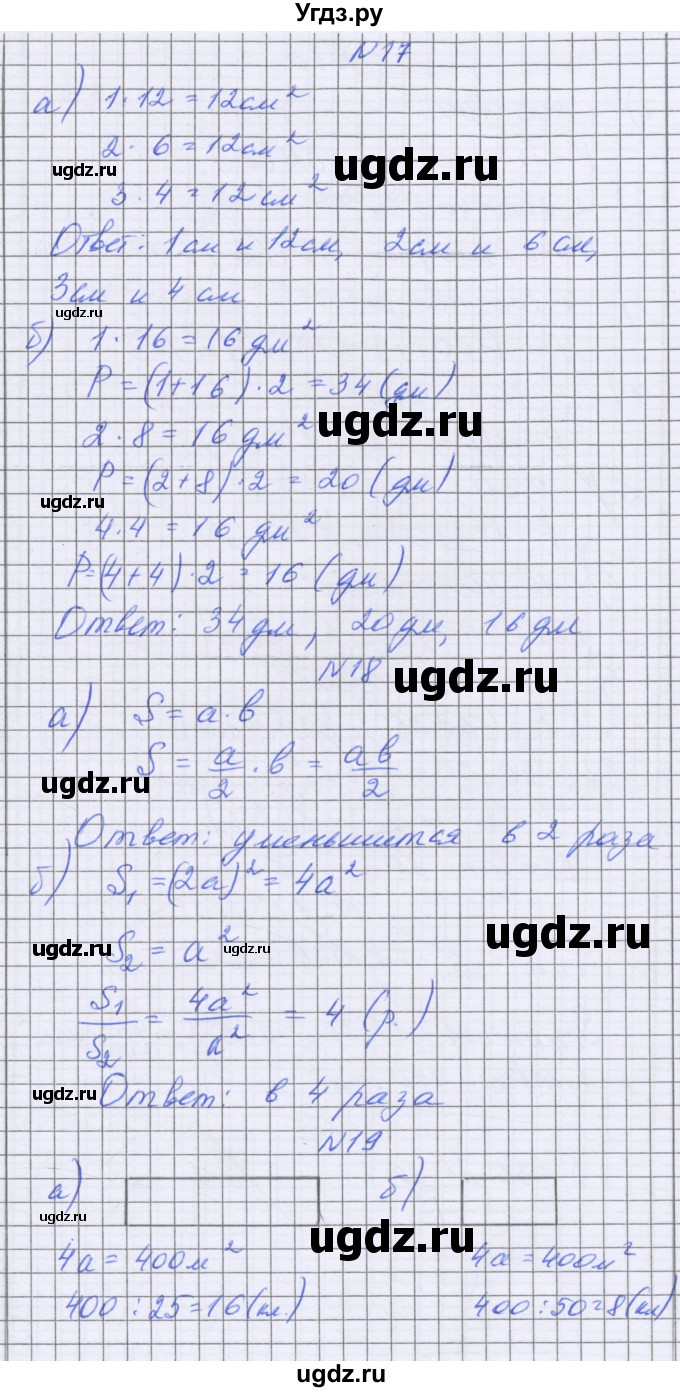 Угдз.ру
N17
а) 1·12=12см²
2·6=12см²
ugdz.ru
ugdz.ru
3·4=12см²
Ответ: 1см и 12см, 2см и 6см,
3см и 4см
ugdz.ru
б) 1·16=16дм²
P=(1+16)·2=34(дм)
ugdz.ru
2·8=16дм²
P=(2+8)·2=20(дм)
ugdz.ru
4·4=16дм²
P=(4+4)·2=16(дм)
Ответ: 34дм, 20дм, 16дм
N18
ugdz.ru
а) S=a·в
ugdz.ru
S=a/2·в=aв/2
Ответ: уменьшится в 2 раза
б) S₁=(2a)²=4a²
ugdz.ru
ugdz.ru
S₂=a²
ugdz.ru
S₁/S₂=4a²/a²=4(р.)
ugdz.ru
Ответ: в 4 раза
N19
а) б)
ugdz.ru
ugdz.ru
4а=400м² 4а=400м²
400:25=16(кл.) 400:50=8(кл)
ugdz.ru